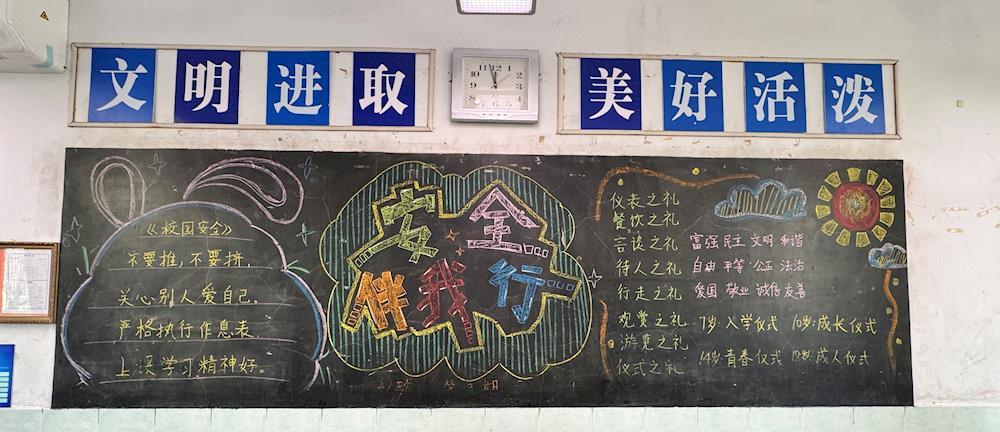 文明进取
美好活泼
《校园安全》
不要推,不要挤,
关心别人爱自己。
严格执行作息表,
上课学习精神好。
安全
伴我行
仪表之礼
餐饮之礼
言谈之礼 富强 民主 文明 和谐
待人之礼 自由 平等 公正 法治
行走之礼 爱国 敬业 诚信 友善
观赏之礼 7岁·入学仪式 10岁·成长仪式
游览之礼
仪式之礼 14岁·青春仪式 18岁·成人仪式